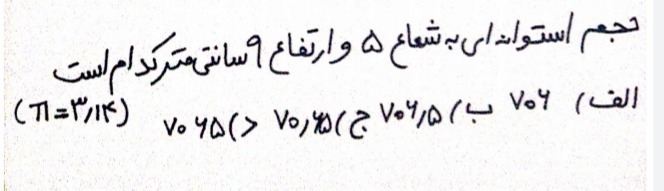 حجم استوانه ای به شعاع ۵ و ارتفاع ۹ سانتی متر کدام است
الف) ۷۰۶ ب) ۷۰۶٫۵ ج) ۷۰٫۶۵ د) ۷۰۶۵ (π=۳٫۱۴)